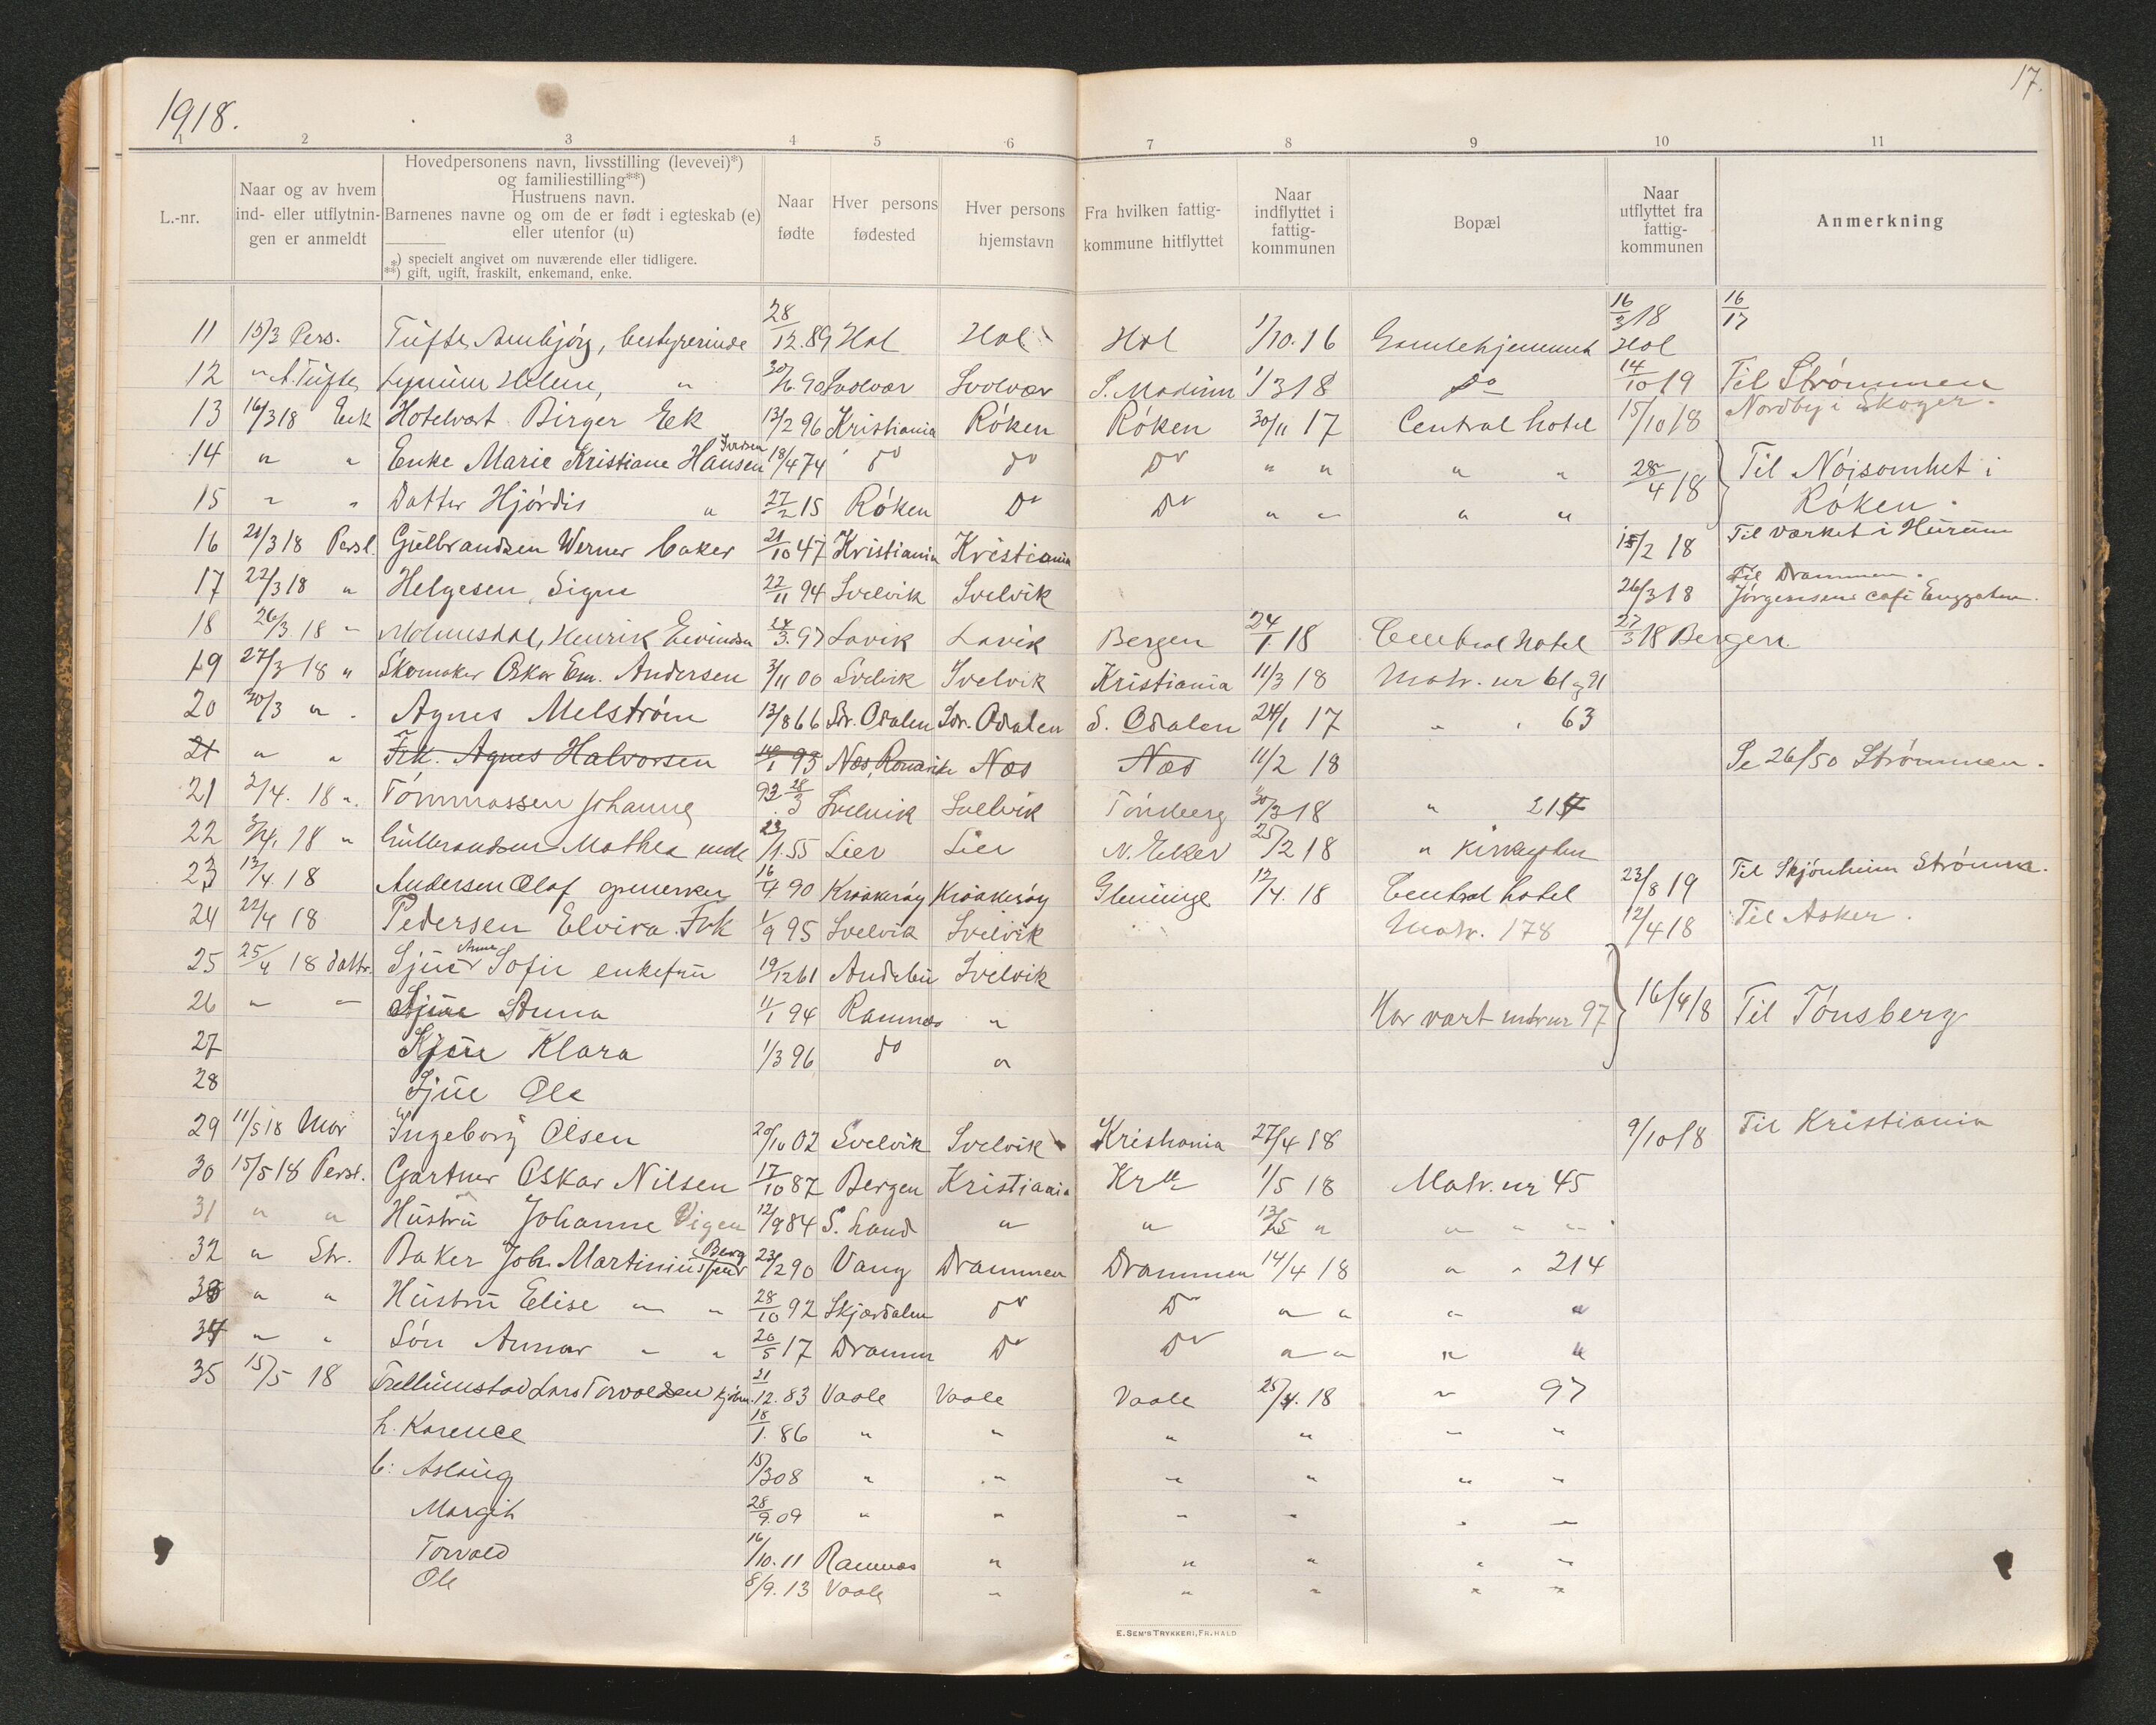 1918.
17.
1 2 3 4 5 6 7 8 9 10 11
L.-nr.
Naar og av hvem
ind- eller utflytnin-
gen er anmeldt
Hovedpersonens navn, livsstilling (levevei)*)
og familiestilling**)
Hustruens navn.
Barnenes navne og om de er født i egteskab (e)
eller utenfor (u)
*) specielt angivet om nuværende eller tidligere.
**) gift, ugift, fraskilt, enkemand, enke.
Naar
fødte
Hver persons
fødested
Hver persons
hjemstavn
Fra hvilken fattig-
kommune hitflyttet
Naar
indflyttet i
fattig-
kommunen
Bopæl
Naar
utflyttet fra
fattig-
kommunen
Anmerkning
11 15/3 Pers. Tufte, Ambjørg, bestyrerinde 28/12.89 Hol Hol Hol 1/10.16 Gamlehjemmet 16/3 18 Hol 16/17
12 " A. Tufte Helene, " 30/6.90 Svolvær Svolvær S. Modum 1/3 18 do 14/10 19 Til Strømmen
13 16/3 18 Eek Hotelvært Birger Eek 13/2 96 Kristiania Røken Røken 30/11 17 Central hotel 15/10 18 Nordby i Skoger.
14 " " Enke Marie Kristiane Hansen Iversen 18/4 74 do do Do " " " " 28/4 18 Til Nøisomhet i
15 " " Datter Hjørdis " 27/2 15 Røken Do Do " " " " Røken.
16 21/3 18 Persl. Gulbrandsen Werner baker 21/10 47 Kristiania Kristiania 15/2 18 Til værket i Hurum
17 22/3 18 " Helgesen, Signe 22/11 94 Svelvik Svelvik 26/3 18 Til Drammen.
Jørgensens café Enggaten.
18 26/3 18 " Henrik Eivindsen 24/3.97 Lavik Lavik Bergen 24/1.18 Central hotel 27/3 18 Bergen.
19 27/3 18 " Skomaker Oskar Em. Andersen 3/11 00 Svelvik Svelvik Kristiania 11/3 18 Matr. nr 61 og 91
20 30/3 " . Agnes Melstrøm 13/8 66 Sdr. Odalen Sdr. Odalen S. Odalen 24/1 17 " " 63
21 " " Frk. Agnes Halvorsen 14/1 95 Næs, Romerike Næs Næs 11/2 18 Se 26/50 Strømmen.
21 2/4. 18 ". Tømmassen Johanne 92 28/3 Svelvik Svelvik Tønsberg 30/3 18 " 214
22 3/4. 18 " Gulbrandsen Mathea 23/1.55 Lier Lier N. Eker 25/2 18 "
23 13/4. 18 Andersen Olaf 16/4.90 Kråkerøy Kråkerøy Glemminge 12/4. 18 Central hotel 23/8 19 Til Skjønheim Strømm.
24 22/4 18 Pedersen Elvira. Frk 1/9 95 Svelvik Svelvik Matr. 178 12/4 18 Til Asker.
25 25/4 18 dattr. Sjue Anne Sofie enkefru 19/12 61 Andebu Svelvik
26 " " Sjue Anna 1/1 94 Ramnes " Har vært mtrnr 97 16/4 18 Til Tønsberg
27 Sjue Klara 1/3 96 do "
28 Sjue Ole
29 11/5 18 Mor Ingeborg Olsen 20/10 02 Svelvik Svelvik Kristiania 27/4 18 9/10 18 Til Kristiania
30 15/5 18 Persl. Gartner Oskar Nilsen 17/10 87 Bergen Kristiania Kr 1/5 18 Matr. nr 45
31 " " Hustru Johanne Vigen 12/9 84 S. Land " " 13/5 " " " "
32 " Str. Baker Joh. Martiniussen Berg 23/2 90 Vang Drammen Drammen 14/4 18 " " 214
33 " " Hustru Elise " " 28/10 92 Skjærdalen do Do " " " "
34 " " Søn Annar " " 20/5 17 Dramm Do Do " " " "
35 15/5 18 Lars Torvaldsen 21/12.83 Vaale Vaale Vaale 25/4. 18 " 97
h. Karence 18/1.86 " " " " " "
b: Aslaug 15/3 08 " " " " " "
Margit 28/9.09 " " " " " "
Torvald 16/10.11 Ramnæs " " " " "
Ole 8/9.13 Vaale " " " " "
E. SEM'S TRYKKERI, FR.HALD